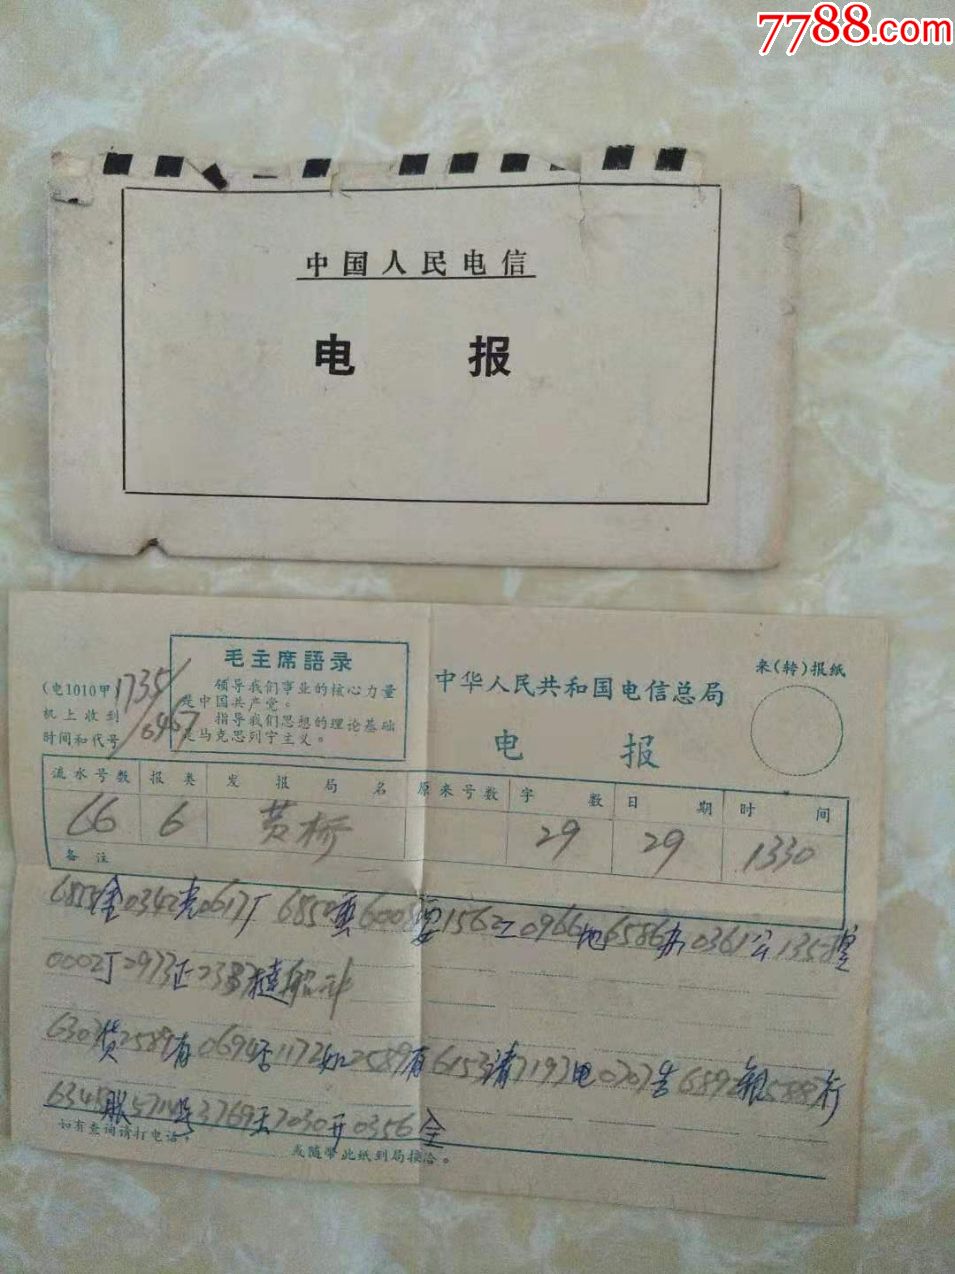 7788.com
中国人民电信
电 报
来(转)报纸
(电1010甲)
机上收到
时间和代号
1735
毛主席語录
领导我们事业的核心力量
是中国共产党。
指导我们思想的理论基础
是马克思列宁主义。
中华人民共和国电信总局
电 报
流水号数 报类 发报局名 原来号数 字数 日期 时间
66 6 黄桥 29 29 1330
备注
0342 0617厂 1562工 0966地 6586办 0361公
0002丁 2973正
6303货2589有0694否1172如2589有6153请7193电0707告6892银 行
账 号 7030开0356全
如有查询请打电话,
或随带此纸到局接洽。